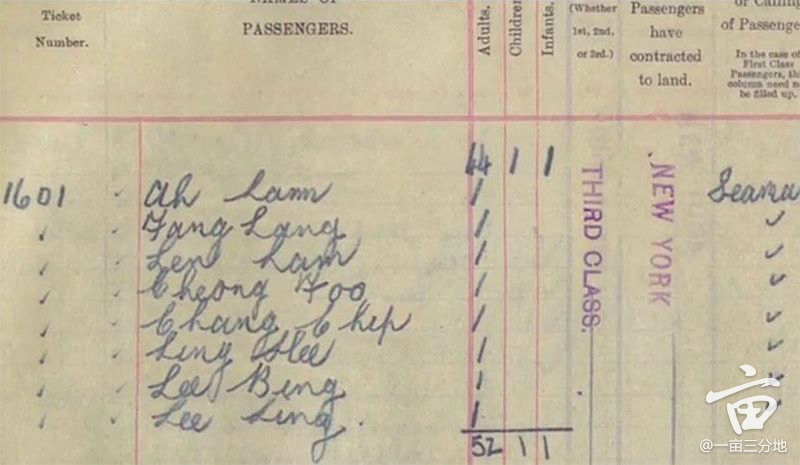 Ticket
Number.
NAMES OF
PASSENGERS.
Adults.
Children
Infants.
(Whether
1st, 2nd,
or 3rd.)
Passengers
have
contracted
to land.
of Passenge
In the case of
First Class
Passengers, th
column need n
be filled up.
44 1 1
1601 Ah Lam Seama
Fang Lang
Len Lam
Cheong Foo
Chang Chip
Ling Hee
Lee Bing
Lee Ling.
52 1 1
THIRD CLASS.
NEW YORK
亩
@一亩三分地